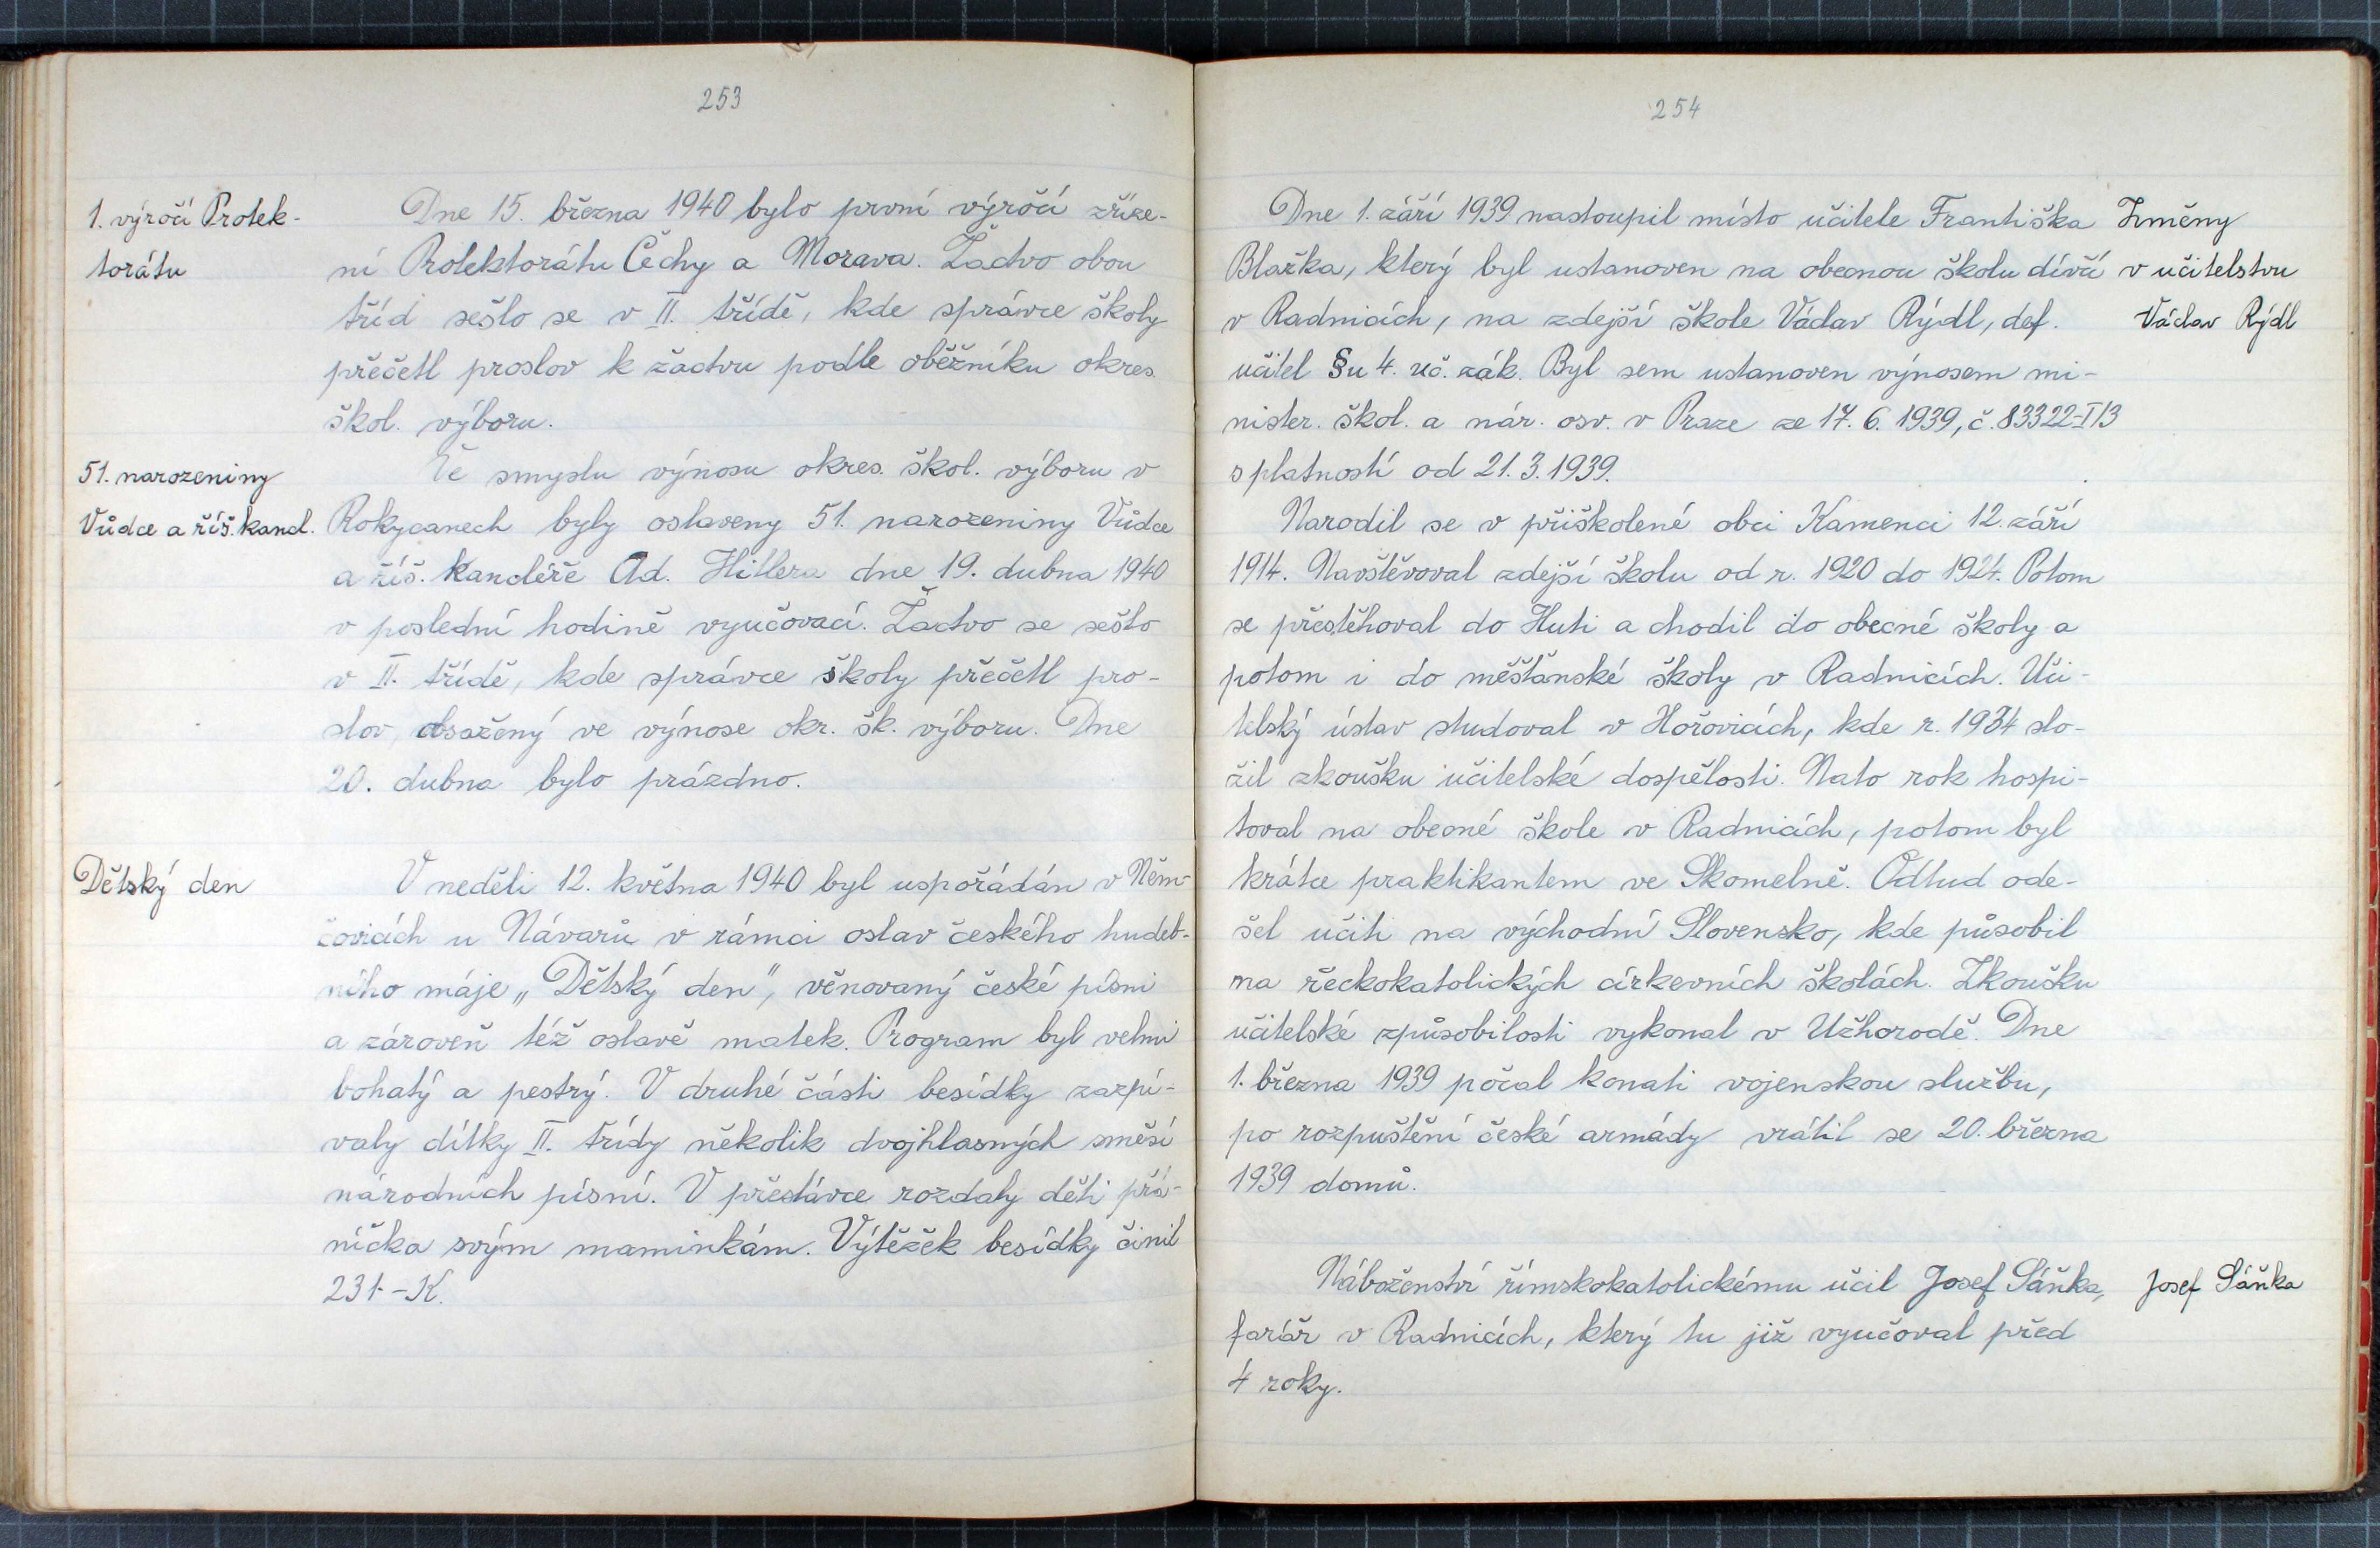 253
1. výročí Protek-
torátu
Dne 15. března 1940 bylo první výročí zříze-
ní Protektorátu Čechy a Morava. Žactvo obou
tříd sešlo se v II. třídě, kde správce školy
přečetl proslov k žactvu podle oběžníku okres.
škol. výboru.
51. narozeniny
Vůdce a říš. kancl.
Ve smyslu výnosu okres. škol. výboru v
Rokycanech byly oslaveny 51. narozeniny Vůdce
a říš. kancléře Ad. Hitlera dne 19. dubna 1940
v poslední hodině vyučovací. Žactvo se sešlo
v II. třídě, kde správce školy přečetl pro-
slov, obsažený ve výnose okr. šk. výboru. Dne
20. dubna bylo prázdno.
Dětský den
V neděli 12. května 1940 byl uspořádán v Něm-
čovicích u Návarů v rámci oslav českého hudeb-
ního máje „Dětský den", věnovaný české písni
a zároveň též oslavě matek. Program byl velmi
bohatý a pestrý. V druhé části besídky zazpí-
valy dítky II. třídy několik dvojhlasných směsí
národních písní. V přestávce rozdaly děti přá-
níčka svým maminkám. Výtěžek besídky činil
231·-K.
254
Dne 1. září 1939 nastoupil místo učitele Františka
Blažka, který byl ustanoven na obecnou školu dívčí
v Radnicích, na zdejší škole Václav Rýdl, def.
učitel §u 4. uč. zák. Byl sem ustanoven výnosem mi-
nister. škol. a nár. osv. v Praze ze 17. 6. 1939, č. 83322-I/3
s platností od 21. 3. 1939.
Změny
v učitelstvu
Václav Rýdl
Narodil se v přiškolené obci Kamenci 12. září
1914. Navštěvoval zdejší školu od r. 1920 do 1924. Potom
se přestěhoval do Huti a chodil do obecné školy a
potom i do měšťanské školy v Radnicích. Uči-
telský ústav studoval v Hořovicích, kde r. 1934 slo-
žil zkoušku učitelské dospělosti. Nato rok hospi-
toval na obecné škole v Radnicích, potom byl
krátce praktikantem ve Skomelně. Odtud ode-
šel učiti na východní Slovensko, kde působil
na řeckokatolických církevních školách. Zkoušku
učitelské způsobilosti vykonal v Užhorodě. Dne
1. března 1939 počal konati vojenskou službu,
po rozpuštění české armády vrátil se 20. března
1939 domů.
Náboženství římskokatolickému učil Josef Sáňka,
farář v Radnicích, který tu již vyučoval před
4 roky.
Josef Sáňka